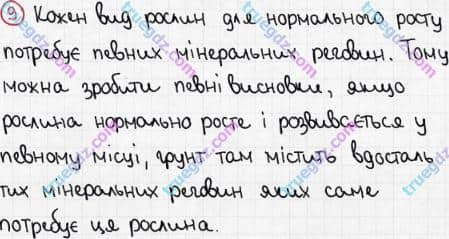 9) Кожен вид рослин для нормального росту
потребує певних мінеральних речовин. Тому
можна зробити певні висновки, якщо
рослина нормально росте і розвивається у
певному місці, ґрунт там містить вдосталь
тих мінеральних речовин яких саме
потребує ця рослина.
truegdz.com